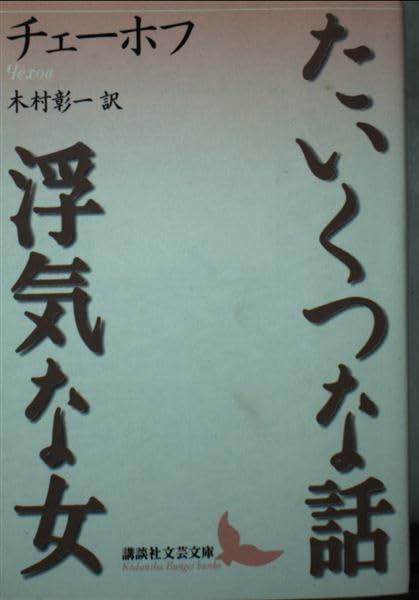 たいくつな話
浮気な女
チェーホフ
Чехов
木村彰一 訳
講談社文芸文庫
Kodansha Bungei bunko